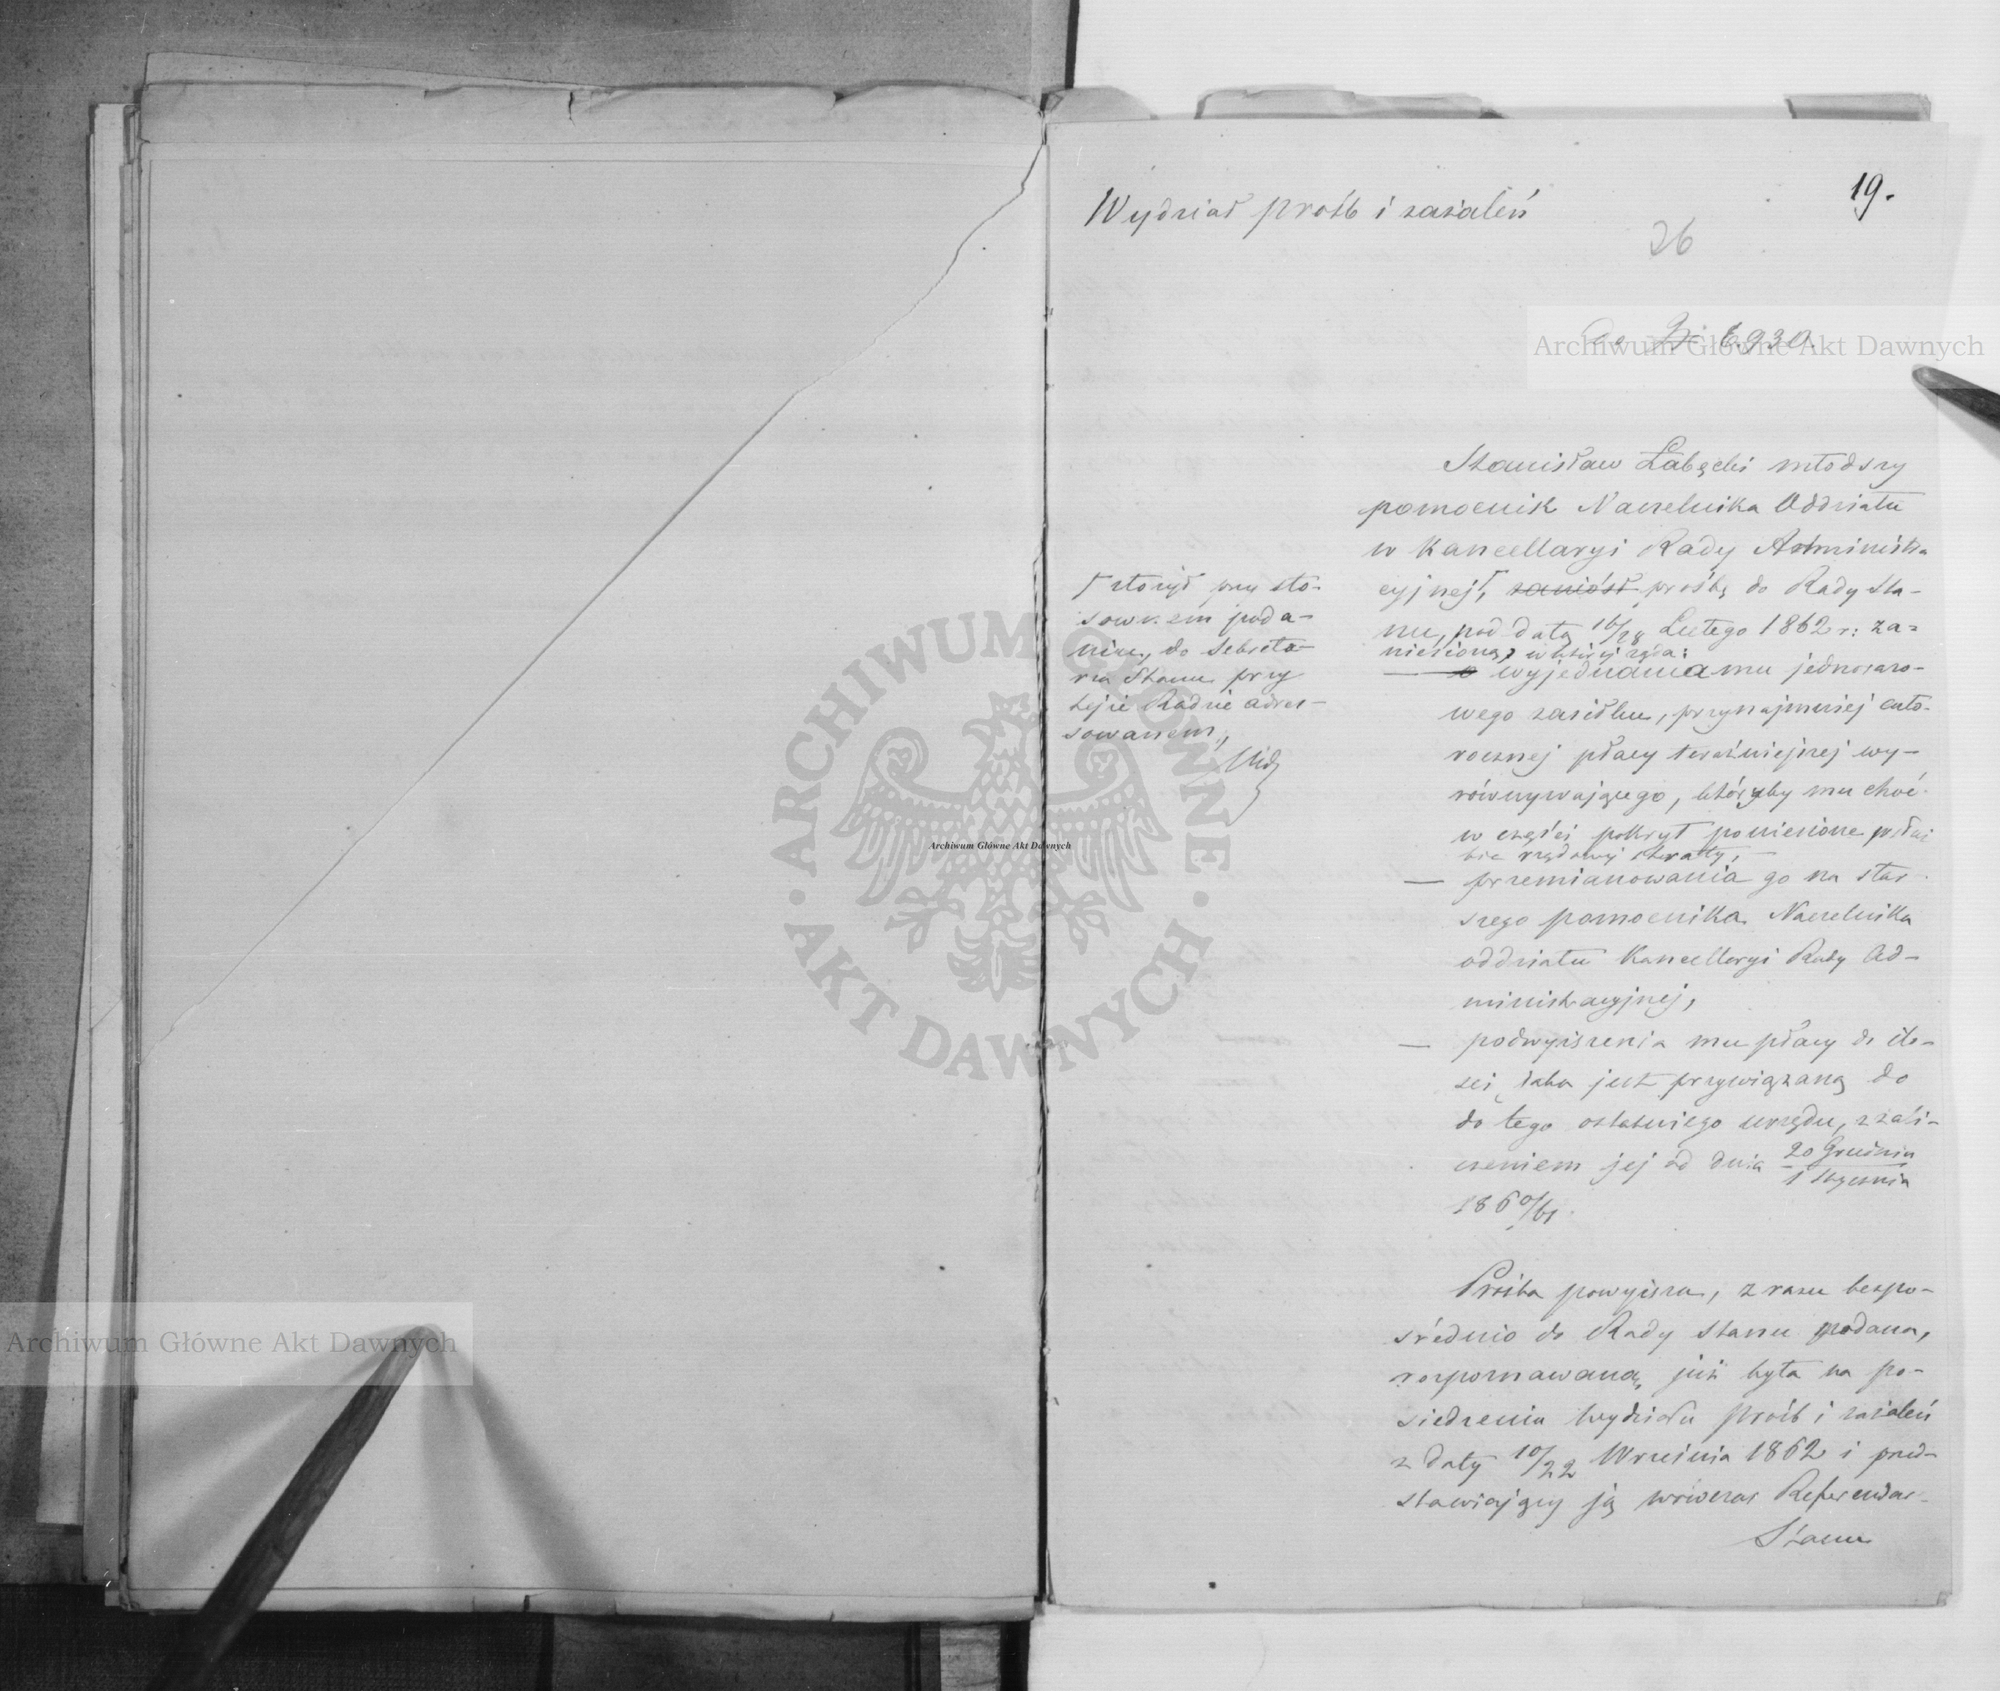 19.
Wydział prośb i zażaleń
26
Do N 6930.
Stanisław Łabęcki młodszy
pomocnik Naczelnika Oddziału
w Kancellaryi Rady Administra
cyjnej, zaniósł prośbę do Rady Sta-
nu, pod datą 16/28 Lutego 1862 r: za-
niesioną, w której żąda:
— o wyjednania mu jednorazo-
wego zasiłku, przynajmniej cało-
rocznej płacy teraźniejszej wy-
równywającego, któryby mu choć
w części pokrył poniesione w służ
bie rządowej straty,
— przemianowania go na star-
szego pomocnika Naczelnika
oddziału Kancellaryi Rady Ad-
ministracyjnej,
— podwyższenia mu płacy do ilo-
ści, jaka jest przywiązaną do
do tego ostatniego urzędu, z zali-
czeniem jej od dnia 20 Grudnia
1 Stycznia
1860/61.
złożył przy sto-
sownem poda-
niu, do Sekreta-
rza Stanu przy
tejże Radzie adres-
sowanem,
Prośba powyższa, z razu bezpo-
średnio do Rady Stanu podana,
rozpoznawaną już była na po-
siedzeniu Wydziału prośb i zażaleń
z daty 10/22 Września 1862 i przed-
stawiający ją wówczas Referendarz
Stanu
Archiwum Główne Akt Dawnych
Archiwum Główne Akt Dawnych
Archiwum Główne Akt Dawnych
ARCHIWUM GŁÓWNE
AKT DAWNYCH